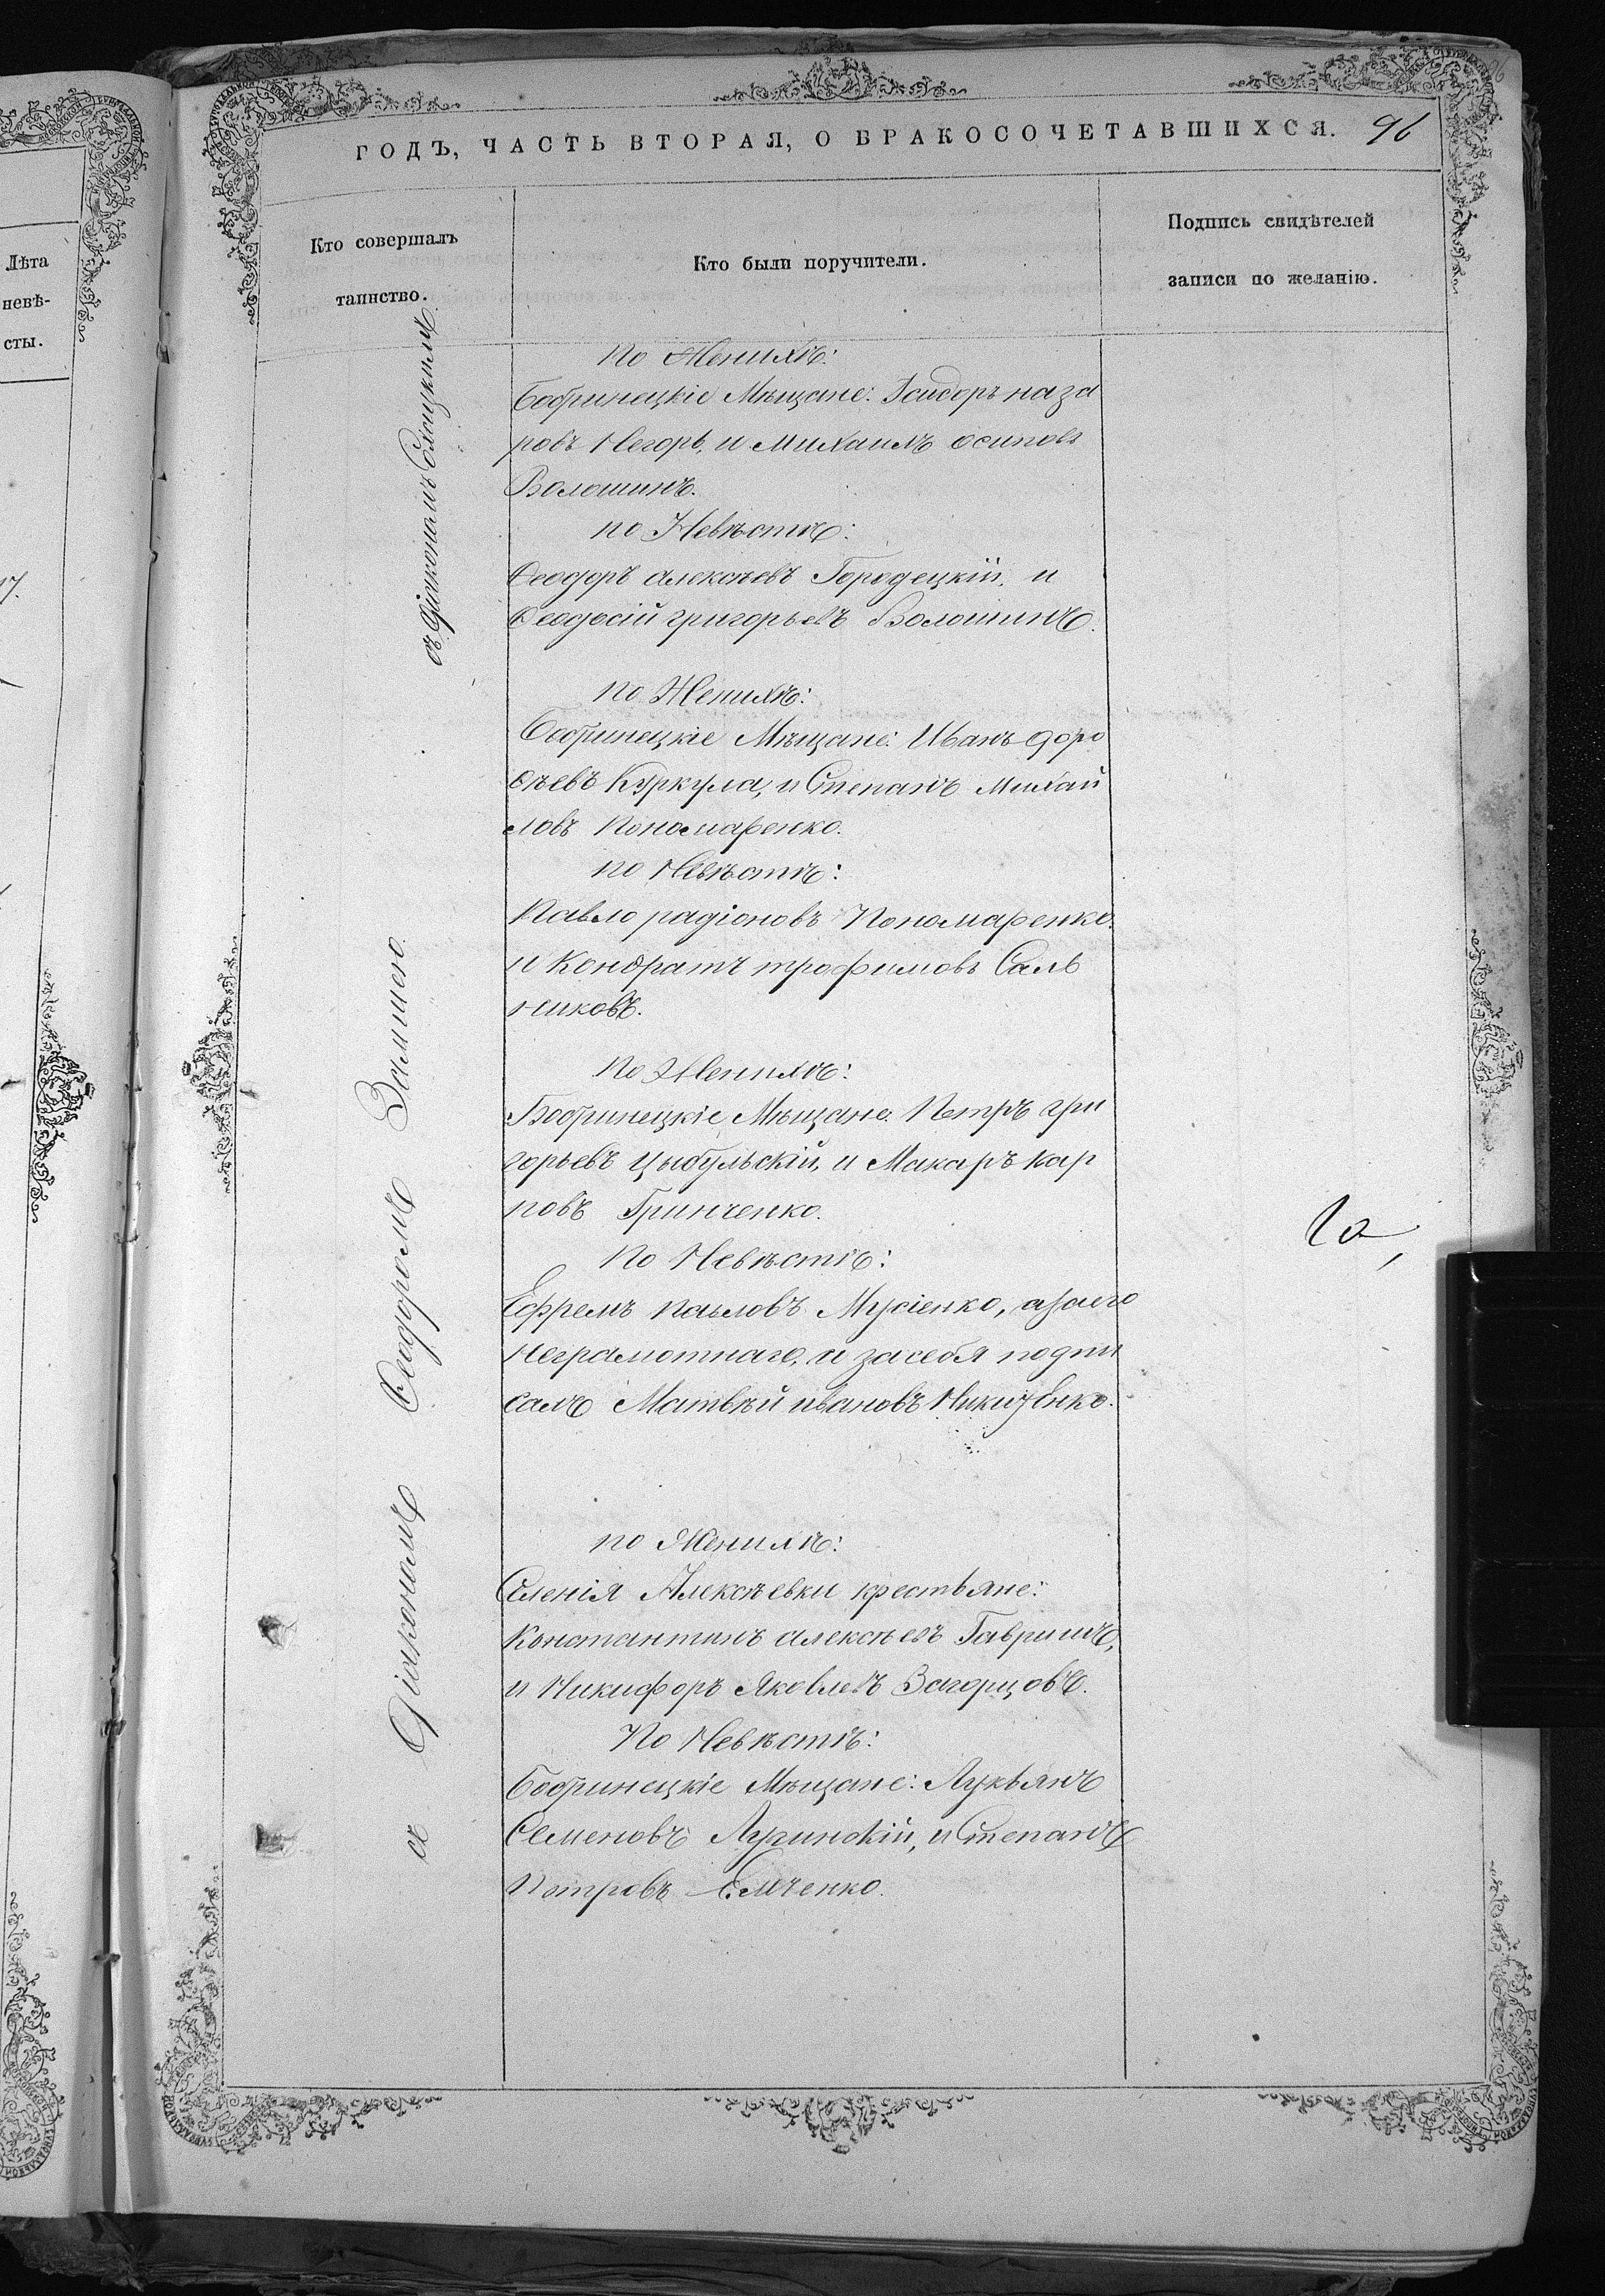 ГОДЪ, ЧАСТЬ ВТОРАЯ, О БРАКОСОЧЕТАВШИХСЯ. 96
Лѣта
невѣ-
сты.
17.
Кто совершалъ
таинство.
Кто были поручители.
Подпись свидѣтелей
записи по желанію.
съ Діакономъ
съ Діакономъ Ѳеодоромъ
по Женихѣ:
Бобринецкіе Мѣщане: Ісидоръ наза
ровъ Негоръ, и Михаилъ осиповъ
Волошинъ.
по Невѣстѣ:
Ѳеодоръ алексѣевъ Городецкій, и
Ѳеодосій григорьевъ Волошинъ.
по Женихѣ:
Бобринецкіе Мѣщане: Иванъ доро
ѳѣевъ Куркула, и Степанъ Михай
ловъ Пономаренко.
по Невѣстѣ:
Павло радіоновъ Пономаренко.
и Кондратъ трофимовъ Саль
никовъ.
по Женихѣ:
Бобринецкіе Мѣщане: Петръ гри
горьевъ Цыбульскій, и Макаръ кар
повъ Гринченко.
По Невѣстѣ:
Ефремъ павловъ Мусіенко, азаего
неграмотнаго, и засебя подпи
салъ Матвѣй ивановъ Никитенко.
по Женихѣ:
Селенія Алексѣевки крестьяне:
Константинъ алексѣевъ Гавришъ,
и Никифоръ Яковлевъ Загорцовъ.
По Невѣстѣ:
Бобринецкіе Мѣщане: Лукьянъ
Семеновъ Лугинскій, и Степанъ
Петровъ Емченко.